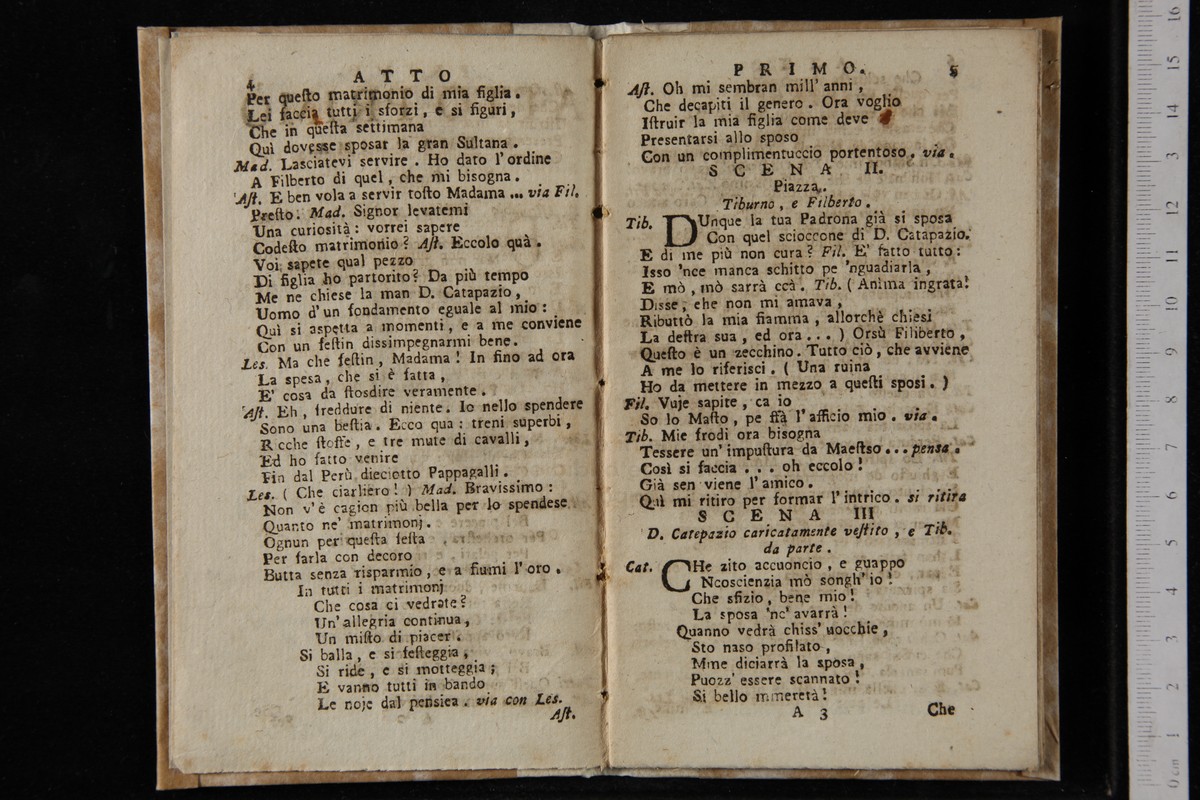 4
ATTO
Per questo matrimonio di mia figlia.
Lei faccia tutti i sforzi, e si figuri,
Che in questa settimana
Quì dovesse sposar la gran Sultana.
Mad. Lasciatevi servire. Ho dato l'ordine
A Filberto di quel, che mi bisogna.
Ast. E ben vola a servir tosto Madama ... via Fil.
Presto. Mad. Signor levatemi
Una curiosità: vorrei sapere
Codesto matrimonio? Ast. Eccolo quà.
Voi sapete qual pezzo
Di figlia ho partorito? Da più tempo
Me ne chiese la man D. Catapazio,
Uomo d'un fondamento eguale al mio:
Quì si aspetta a momenti, e a me conviene
Con un festin dissimpegnarmi bene.
Les. Ma che festin, Madama! In fino ad ora
La spesa, che si è fatta,
E' cosa da stosdire veramente.
Ast. Eh, freddure di niente. Io nello spendere
Sono una bestia. Ecco qua: treni superbi,
Ricche stoffe, e tre mute di cavalli,
Ed ho fatto venire
Fin dal Perù dieciotto Pappagalli.
Les. ( Che ciarliero! ) Mad. Bravissimo:
Non v'è cagion più bella per lo spendese
Quanto ne' matrimonj.
Ognun per questa festa
Per farla con decoro
Butta senza risparmio, e a fiumi l'oro.
In tutti i matrimonj
Che cosa ci vedrate?
Un'allegria continua,
Un misto di piacer.
Si balla, e si festeggia,
Si ride, e si motteggia;
E vanno tutti in bando
Le noje dal pensiea. via con Les.
Ast.
PRIMO.
5
Ast. Oh mi sembran mill'anni,
Che decapiti il genero. Ora voglio
Istruir la mia figlia come deve
Presentarsi allo sposo
Con un complimentuccio portentoso. via.
SCENA II.
Piazza.
Tiburno, e Filberto.
Tib. DUnque la tua Padrona già si sposa
Con quel scioccone di D. Catapazio.
E di me più non cura? Fil. E' fatto tutto:
Isso 'nce manca schitto pe 'nguadiarla,
E mò, mò sarrà ccà. Tib. ( Anima ingrata!
Disse, che non mi amava,
Ributtò la mia fiamma, allorchè chiesi
La destra sua, ed ora... ) Orsù Filiberto,
Questo è un zecchino. Tutto ciò, che avviene
A me lo riferisci. ( Una ruina
Ho da mettere in mezzo a questi sposi. )
Fil. Vuje sapite, ca io
So lo Masto, pe ffà l'afficio mio. via.
Tib. Mie frodi ora bisogna
Tessere un'impustura da Maestso... pensa.
Così si faccia ... oh eccolo!
Già sen viene l'amico.
Quì mi ritiro per formar l'intrico. si ritira
SCENA III
D. Catepazio caricatamente vestito, e Tib.
da parte.
Cat. CHe zito accuoncio, e guappo
Ncoscienzia mò songh'io!
Che sfizio, bene mio!
La sposa 'nc'avarrà!
Quanno vedrà chiss'uocchie,
Sto naso profilato,
Mme diciarrà la sposa,
Puozz'essere scannato!
Si bello mmeretà!
A 3
Che